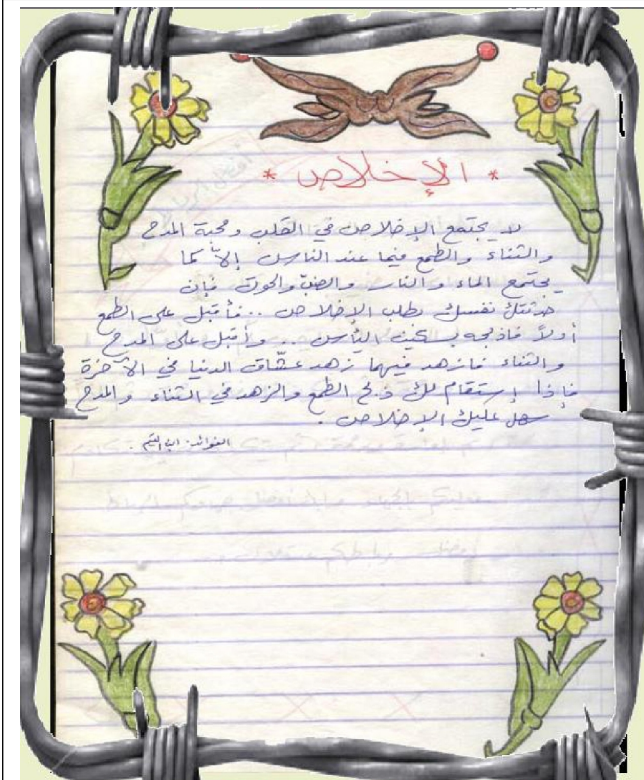 * الإخلاص *
لا يجتمع الإخلاص في القلب ومحبة المدح
والثناء والطمع فيما عند الناس إلا كما
يجتمع الماء والنار والضب والحوت فإن
حدثتك نفسك بطلب الإخلاص .. فأقبل على الطمع
أولاً فاذبحه بسكين اليأس .. وأقبل على المدح
والثناء فازهد فيهما زهد عشّاق الدنيا في الآخرة
فإذا إستقام لك ذبح الطمع والزهد في الثناء والمدح
سهل عليك الإخلاص .
الفوائد. ابن القيم .